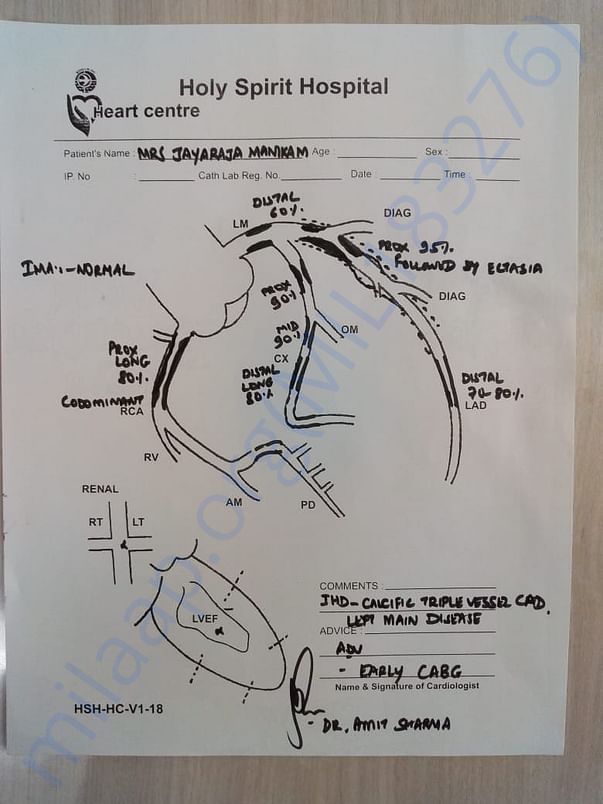 Holy Spirit Hospital
Heart centre
Patient's Name : MRS JAYARAJA MANIKAM Age : Sex :
IP. No : Cath Lab Reg. No. Date : Time :
DISTAL
60%
LM
DIAG
PROX 95%
FOLLOWED BY ECTASIA
IMA:-NORMAL
DIAG
PROX
90%
MID
90%
OM
CX
PROX
LONG
80%
DISTAL
LONG
80%
DISTAL
70-80%
LAD
CODOMINANT
RCA
RV
AM
PD
RENAL
RT LT
LVEF
COMMENTS :
IHD-CALCIFIC TRIPLE VESSEL CAD.
LEFT MAIN DISEASE
ADVICE :
ADV
- EARLY CABG
Name & Signature of Cardiologist
HSH-HC-V1-18
- DR. AMIT SHARMA
milaap.org(MILAP83276)